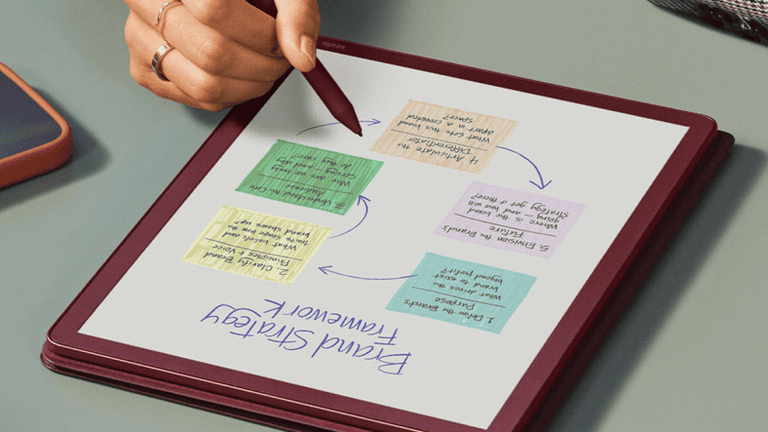 Brand Strategy
Framework
1. Define the Brand's
Purpose
What drives the
brand to exist
beyond profit?
2. Clarify Brand
Principles + Voice
What beliefs and
traits shape how the
brand shows up?
3. Understand the Core
Audience
Who are we truly
serving and why
do they care?
4. Articulate the
Differentiator
What sets this brand
apart in a crowded
space?
5. Envision the Brand's
Future
Where is the brand
going — and how will
strategy get it there?
kindle